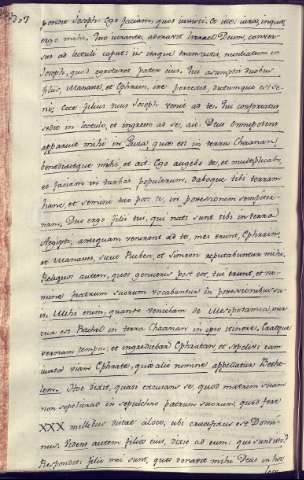 307
pondit Joseph: Ego faciam, quod iussisti. Et ille: iura, inquit,
ergo mihi. Quo iurante, adoravit Israel Deum, conver-
sus ad lectuli caput: is itaque transactis nuntiatum est
Joseph, quod egrotaret pater eius. Qui assumptis duobus
filiis, Manasse, et Ephraim, ire perrexit, dictumque est se-
ni; Ecce filius tuus Joseph venit ad te. Qui confortatus
sedit in lectulo, et ingresso ad se, ait: Deus omnipotens
apparuit mihi in Luza, quae est in terra Chanaan,
benedixitque mihi, et ait: Ego augebo te, et multiplicabo,
et faciam in turbas populorum, daboque tibi terram
hanc, et semini tuo post te, in possessionem sempiter-
nam. Duo ergo filii tui, qui nati sunt tibi in terra
Aegypti, antequam venirem ad te, mei erunt, Ephraim,
et Manasses, sicut Ruben, et Simeon reputabuntur mihi.
Reliquos autem, quos genueris post eos, tui erunt, et no-
mine fratrum suorum vocabuntur in possessionibus su-
is. Mihi enim, quando veniebam de Mesopotamia, mor-
tua est Rachel in terra Chanaan in ipso itinere, eratque
vernum tempus, et ingrediebar Ephratam, et sepelivi eam
iuxta viam Ephratae, quae alio nomine appellatur Bethe-
lem. Hoc dixit, quasi excusans se, quod matrem suam
non sepelierat in sepulcro patrum suorum, quod fere
XXX millibus distat ab loco, ubi crucifixus est Domi-
nus. Videns autem filios eius, dixit ad eum: qui sunt isti?
Respondit: filii mei sunt, quos donavit mihi Deus in hoc
loco